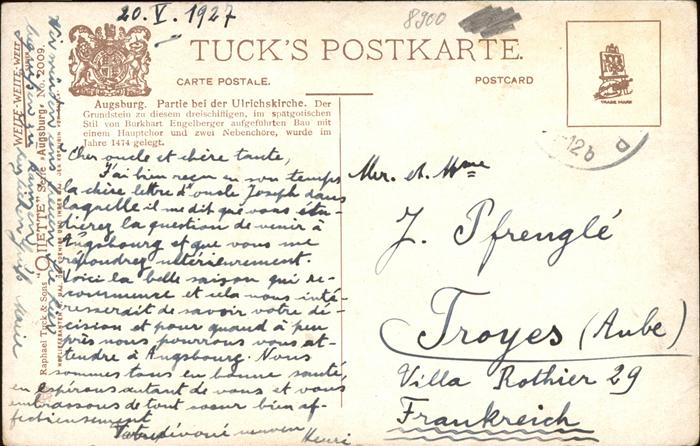 20. V. 1927
8900
TUCK'S POSTKARTE.
CARTE POSTALE.
POSTCARD
TRADE MARK
Augsburg. Partie bei der Ulrichskirche. Der
Grundstein zu diesem dreischiffigen, im spätgotischen
Stil von Burkhart Engelberger aufgeführten Bau mit
einem Hauptchor und zwei Nebenchöre, wurde im
Jahre 1474 gelegt.
Cher oncle et chère tante,
J'ai bien reçu en son temps
la chère lettre d'oncle Joseph dans
laquelle il me dit que vous étu-
dierez la question de venir à
Augsbourg et que vous me
répondrez ultérieurement.
Voici la belle saison qui re-
commence et cela nous inté-
resserait de savoir votre dé-
cision et pour quand à peu
près nous pourrions vous at-
tendre à Augsbourg. Nous
sommes tous en bonne santé,
en espérons autant de vous et vous
embrassons de tout coeur bien af-
fectueusement
Votre dévoué neveu
Henri
Mr. et Mme
J. Pfrenglé
Troyes (Aube)
Villa Rothier 29
Frankreich
12b
Raphael Tuck & Sons "OILETTE" Serie Augsburg No. 2009.
WEITE-WEITE-WELT